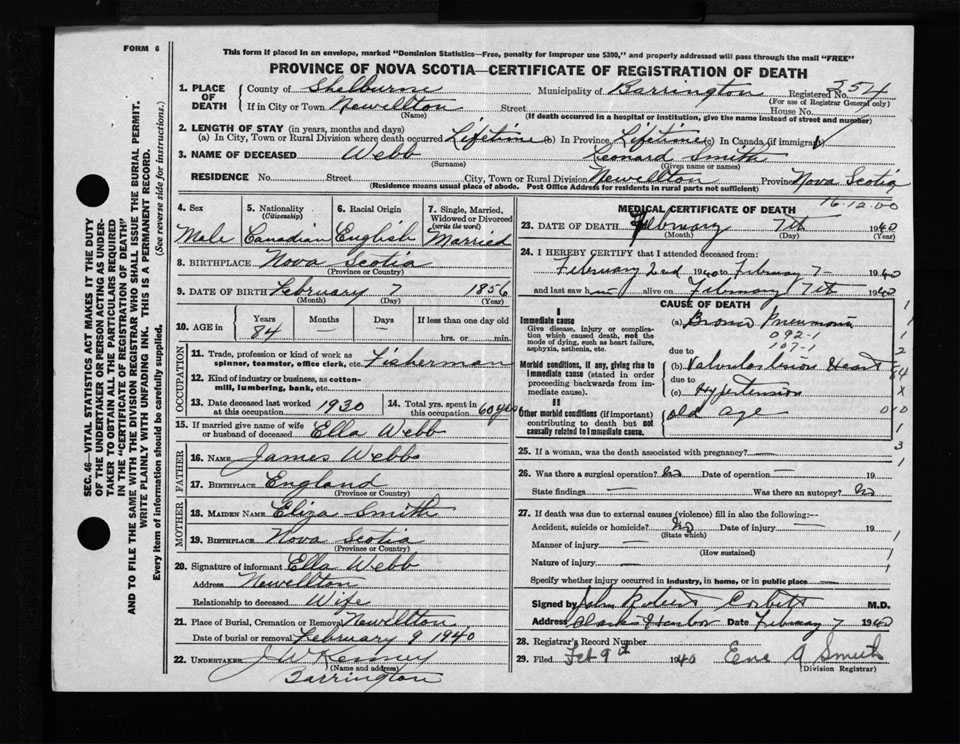 FORM 6
This form if placed in an envelope, marked "Dominion Statistics—Free, penalty for improper use $300," and properly addressed will pass through the mail "FREE"
PROVINCE OF NOVA SCOTIA—CERTIFICATE OF REGISTRATION OF DEATH
SEC. 46—VITAL STATISTICS ACT MAKES IT THE DUTY
OF THE UNDERTAKER OR PERSON ACTING AS UNDER-
TAKER TO OBTAIN ALL THE PARTICULARS REQUIRED
IN THE "CERTIFICATE OF REGISTRATION OF DEATH,"
AND TO FILE THE SAME WITH THE DIVISION REGISTRAR WHO SHALL ISSUE THE BURIAL PERMIT.
WRITE PLAINLY WITH UNFADING INK. THIS IS A PERMANENT RECORD.
Every item of information should be carefully supplied. (See reverse side for instructions.)
1. PLACE OF DEATH County of Shelburne Municipality of Barrington Registered No. 354
(For use of Registrar General only)
If in City or Town Newellton Street House No.
(Name) (If death occurred in a hospital or institution, give the name instead of street and number)
2. LENGTH OF STAY (in years, months and days)
(a) In City, Town or Rural Division where death occurred Lifetime (b) In Province Lifetime (c) In Canada (if immigrant)
3. NAME OF DECEASED Webb Leonard Smith
(Surname) (Given name or names)
RESIDENCE No. Street City, Town or Rural Division Newellton Province Nova Scotia
(Residence means usual place of abode. Post Office Address for residents in rural parts not sufficient)
16.12.00
4. Sex Male
5. Nationality (Citizenship) Canadian
6. Racial Origin English
7. Single, Married, Widowed or Divorced (write the word) Married
8. BIRTHPLACE Nova Scotia
(Province or Country)
9. DATE OF BIRTH February 7 1856
(Month) (Day) (Year)
10. AGE in Years Months Days If less than one day old
84 — — hrs. or min.
OCCUPATION
11. Trade, profession or kind of work as spinner, teamster, office clerk, etc. Fisherman
12. Kind of industry or business, as cotton-mill, lumbering, bank, etc.
13. Date deceased last worked at this occupation 1930
14. Total yrs. spent in this occupation 60 yrs
15. If married give name of wife or husband of deceased Ella Webb
FATHER
16. NAME James Webb
17. BIRTHPLACE England
(Province or Country)
MOTHER
18. MAIDEN NAME Eliza Smith
19. BIRTHPLACE Nova Scotia
(Province or Country)
20. Signature of informant Ella Webb
Address Newellton
Relationship to deceased Wife
21. Place of Burial, Cremation or Removal Newellton
Date of burial or removal February 9, 1940
22. UNDERTAKER J W Kenney
(Name and address)
Barrington
MEDICAL CERTIFICATE OF DEATH
23. DATE OF DEATH February 7th 1940
(Month) (Day) (Year)
24. I HEREBY CERTIFY that I attended deceased from:
February 2nd 1940 to February 7- 1940
and last saw him alive on February 7th 1940
CAUSE OF DEATH
I
Immediate cause
Give disease, injury or complication which caused death, not the mode of dying, such as heart failure, asphyxia, asthenia, etc.
(a) Bronco Pneumonia
092-1
107-1
due to
Morbid conditions, if any, giving rise to immediate cause (stated in order proceeding backwards from immediate cause).
(b) Valvular lesion Heart
due to
(c) Hypertension
II
Other morbid conditions (if important) contributing to death but not causally related to immediate cause.
old age
25. If a woman, was the death associated with pregnancy? —
26. Was there a surgical operation? No Date of operation — 19
State findings — Was there an autopsy? No
27. If death was due to external causes (violence) fill in also the following:—
Accident, suicide or homicide? No Date of injury — 19
(State which)
Manner of injury —
(How sustained)
Nature of injury —
Specify whether injury occurred in industry, in home, or in public place —
Signed by John Robert Corbett M.D.
Address Clarks Harbor Date February 7 1940
28. Registrar's Record Number
29. Filed Feb 9th 1940 A Smith
(Division Registrar)